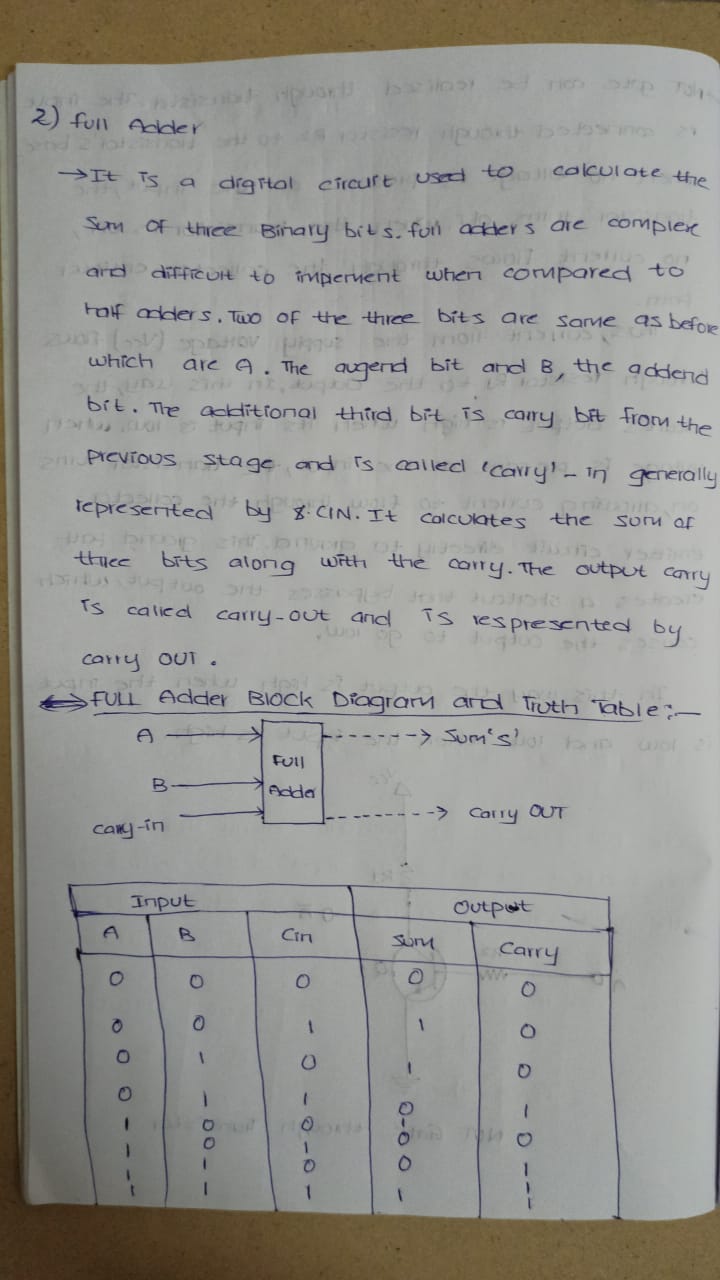 2) full Adder
→ It is a digital circuit used to calculate the
Sum of three Binary bits. full adders are complex
and difficult to impement when compared to
half adders. Two of the three bits are same as before
which are A. The augend bit and B, the addend
bit. The additional third bit is carry bit from the
Previous stage and is called 'carry' - in generally
represented by CIN. It calculates the sum of
three bits along with the carry. The output carry
is called carry-out and is respresented by
carry OUT.
FULL Adder Block Diagram and Truth Table :-
A Full Adder Sum 's'
B
carry-in Carry OUT
Input Output
A B Cin Sum Carry
0 0 0 0 0
0 0 1 1 0
0 1 0 1 0
0 1 1 0 1
1 0 0 1 0
1 0 1 0 1
1 1 0 0 1
1 1 1 1 1